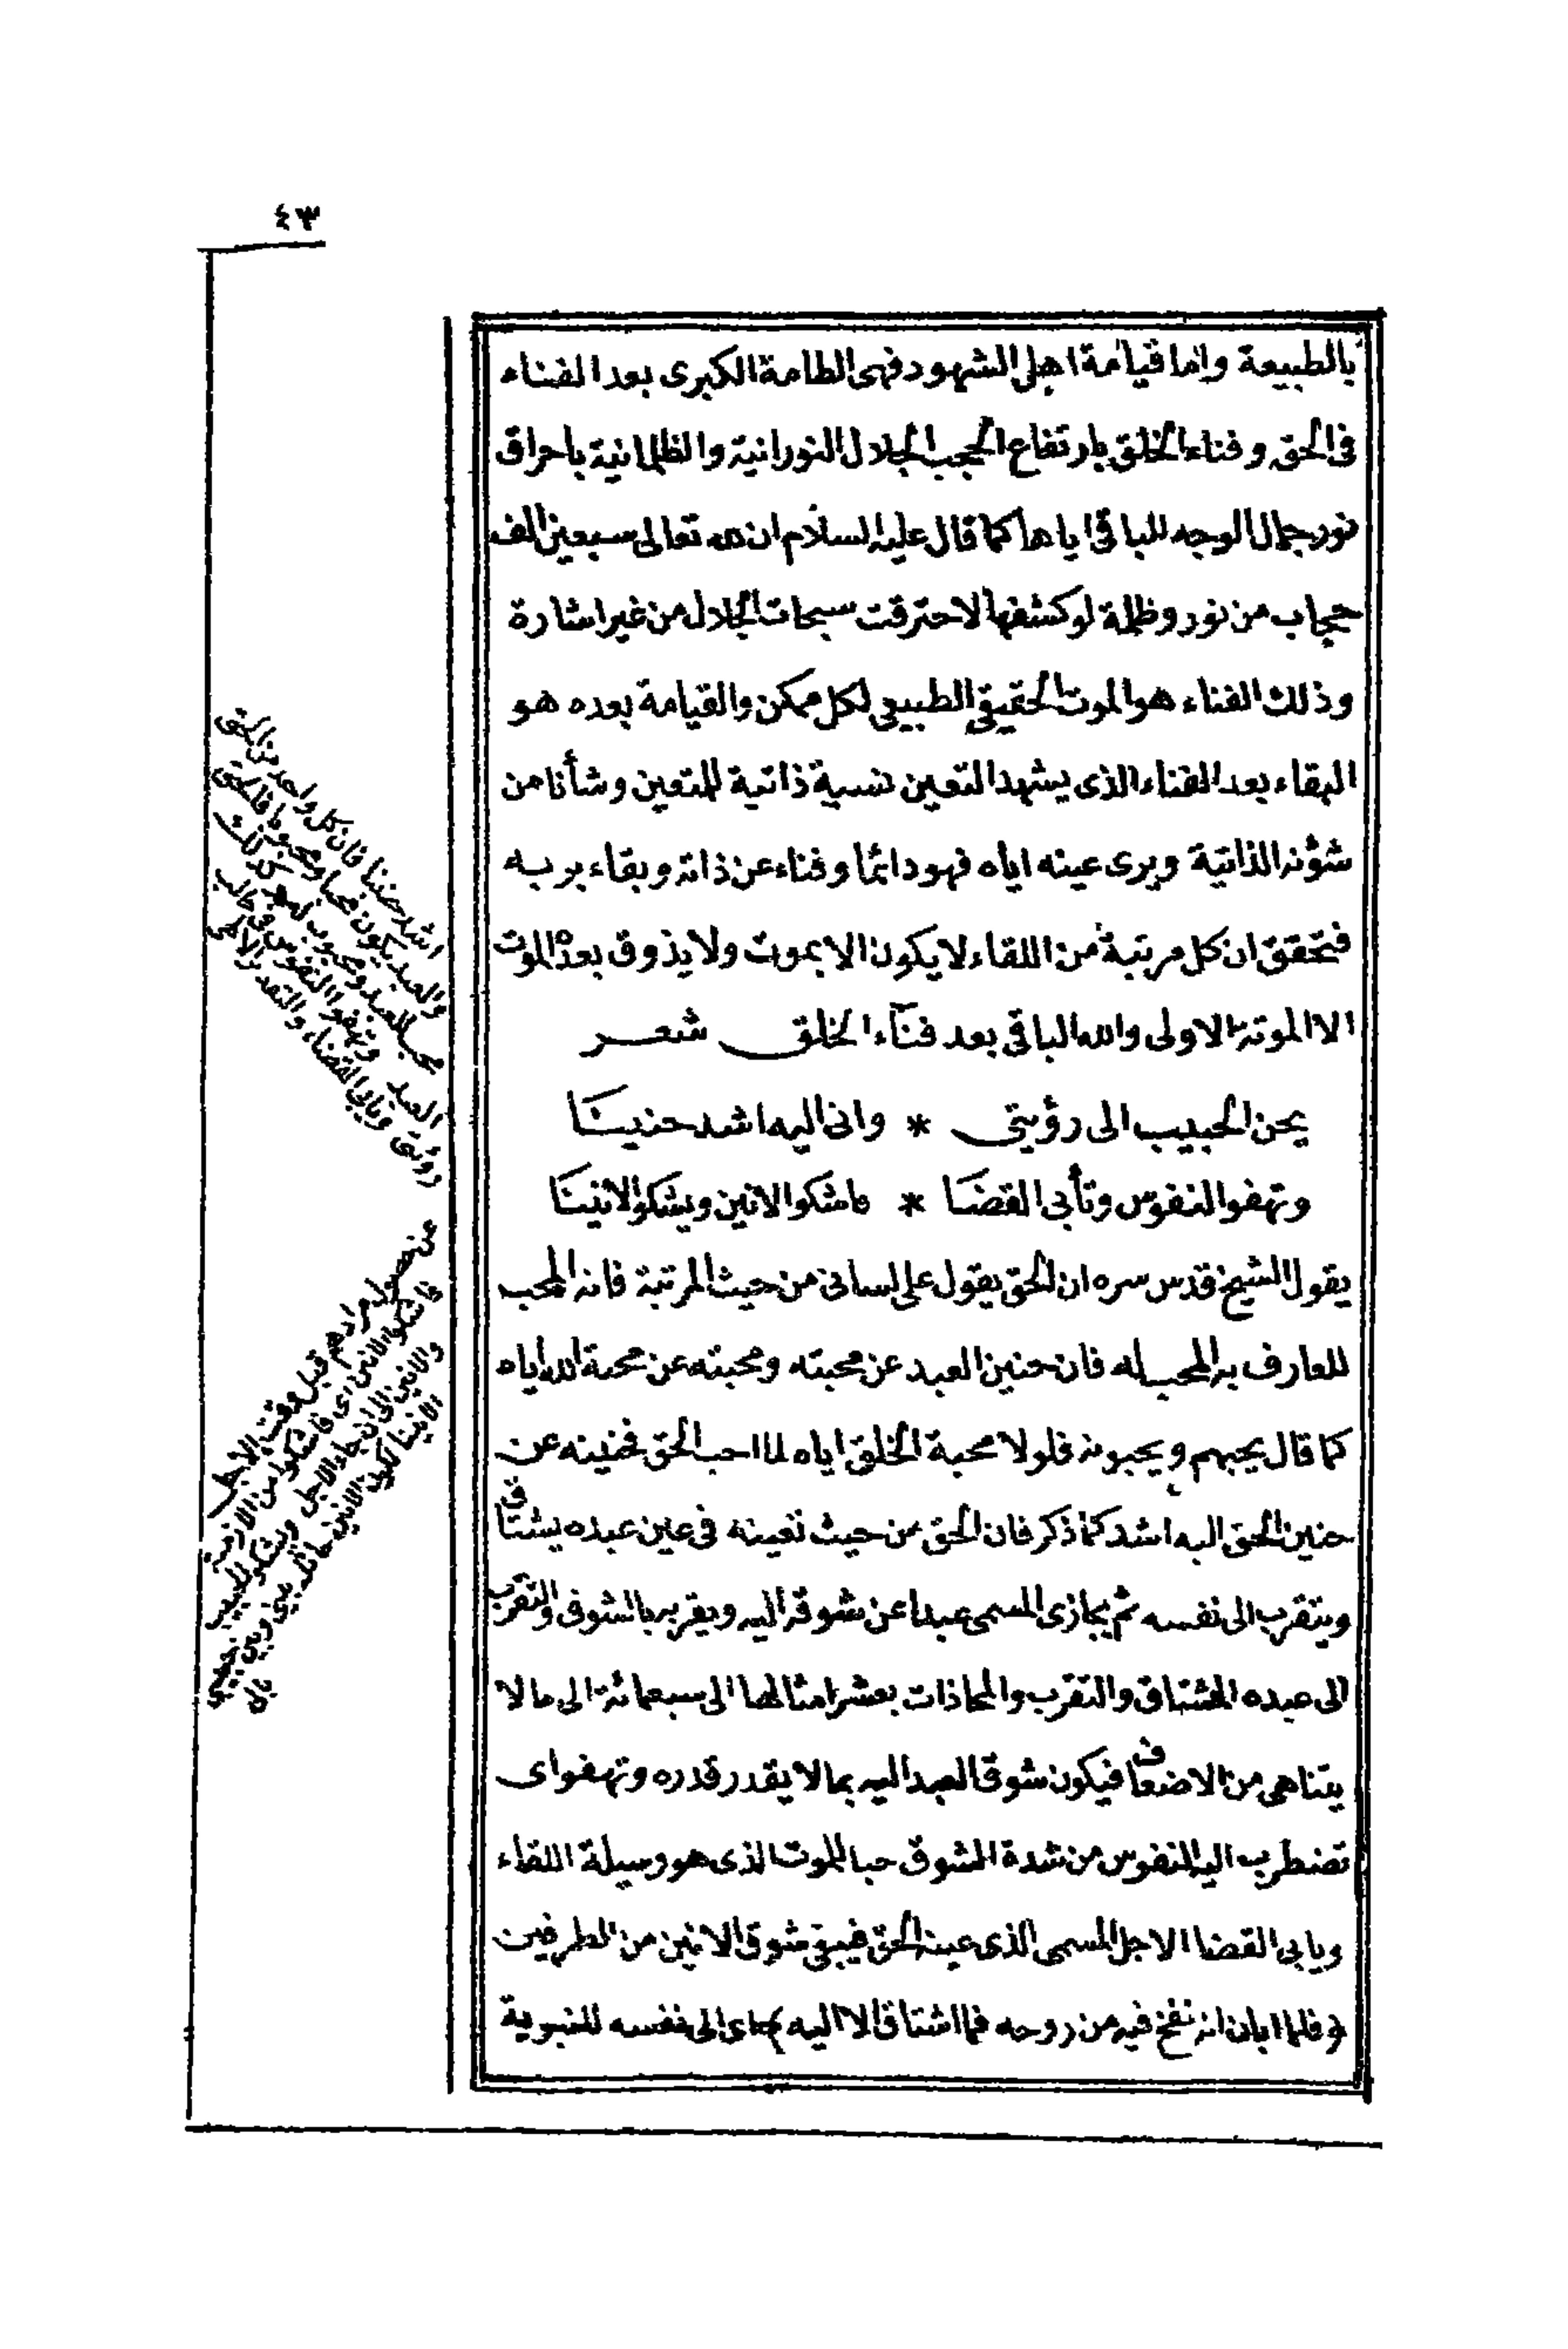 ٤٣
بالطبيعة واما قيامة اهل الشهود فهى الطامة الكبرى بعد الفناء
فى الحق وفناء الخلق بارتفاع الحجب الجلال النورانية والظلمانية باحراق
نور جمال الوجه الباقى اياها كما قال عليه السلام ان لله تعالى سبعين الف
حجاب من نور وظلمة لو كشفها لاحترقت سبحات الجلال من غير اشارة
وذلك الفناء هو الموت الحقيقى الطبيعى لكل ممكن والقيامة بعده هو
البقاء بعد الفناء الذى يشهد التعين نسبة ذاتية للمتعين وشأنا من
شؤنه الذاتية ويرى عينه اياه فهو دائما وفناء عن ذاته وبقاء بربه
فتحقق ان كل مرتبة من اللقاء لا يكون الا بموت ولا يذوق بعد الموت
الا الموتة الاولى والله الباقى بعد فناء الخلق شعر
يحن الحبيب الى رؤيتى * وانى اليه اشد حنينا
وتهفوا النفوس وتأبى القضا * فاشكوا الانين ويشكوا الانينا
يقول الشيخ قدس سره ان الحق يقول على لسانى من حيث المرتبة فانه المحب
للعارف به المحب له فان حنين العبد عن محبته ومحبته عن محبة الله اياه
كما قال يحبهم ويحبونه فلولا محبة الخلق اياه لما احب الحق فحنينه عن
حنين الحق اليه اشد كما ذكر فان الحق من حيث تعينه فى عين عبده يشتاق
ويتقرب الى نفسه ثم يجازى المسمى عبدا عن شوقه اليه ويقربه بالشوق والتقرب
الى عبده المشتاق والتقرب والمحاذات بعشر امثالها الى سبعمائة الى ما لا
يتناهى من الاضعاف فيكون شوق العبد اليه بما لا يقدر قدره وتهفوا اى
تضطرب اليه النفوس من شدة الشوق حبا للموت الذى هو وسيلة اللقاء
ويابى القضا الاجل المسمى الذى عينه الحق فيبقى شوق الانين من الطرفين
﴿فلما ابان انه نفخ فيه من روحه فما اشتاق الا اليه﴾ اى الى نفسه للنبوية
اشد حنينا فان كل واحد من الحق
والعبد يكون محبا ومحبوبا فالحق
محب للعبد ومحبوب له كذلك
العبد وتهفوا النفوس فى طلب
ويابى القضاء والتقدير الالهى
عن حصول مرادهم قبل وقت الاجل
فاشكوا الانين اى فاشكوا من الازمنة
والانين الى ان جاء الاجل ويشكوا الحبيب
الانينا كون الانين بينى وبين حبيبى